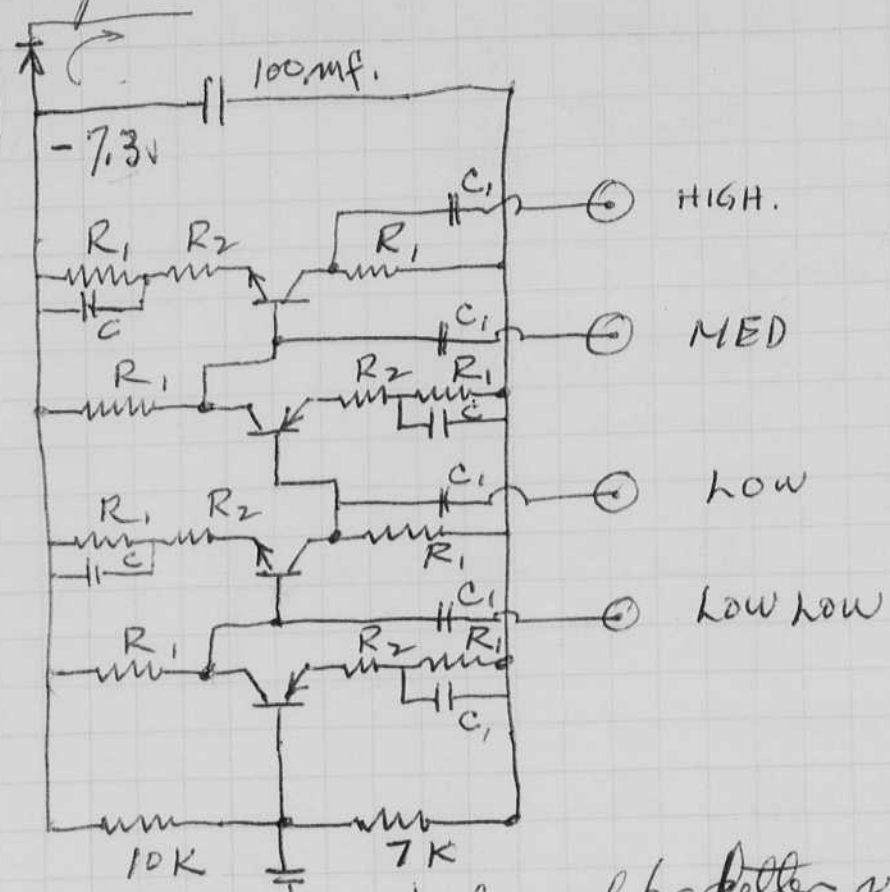 100 mf.
- 7.3v
C₁ HIGH.
R₁ R₂ R₁
C
C₁ MED
R₁ R₂ R₁
C
C₁ LOW
R₁ R₂
C R₁
C₁ LOW LOW
R₁ R₂ R₁
C₁
10K 7K